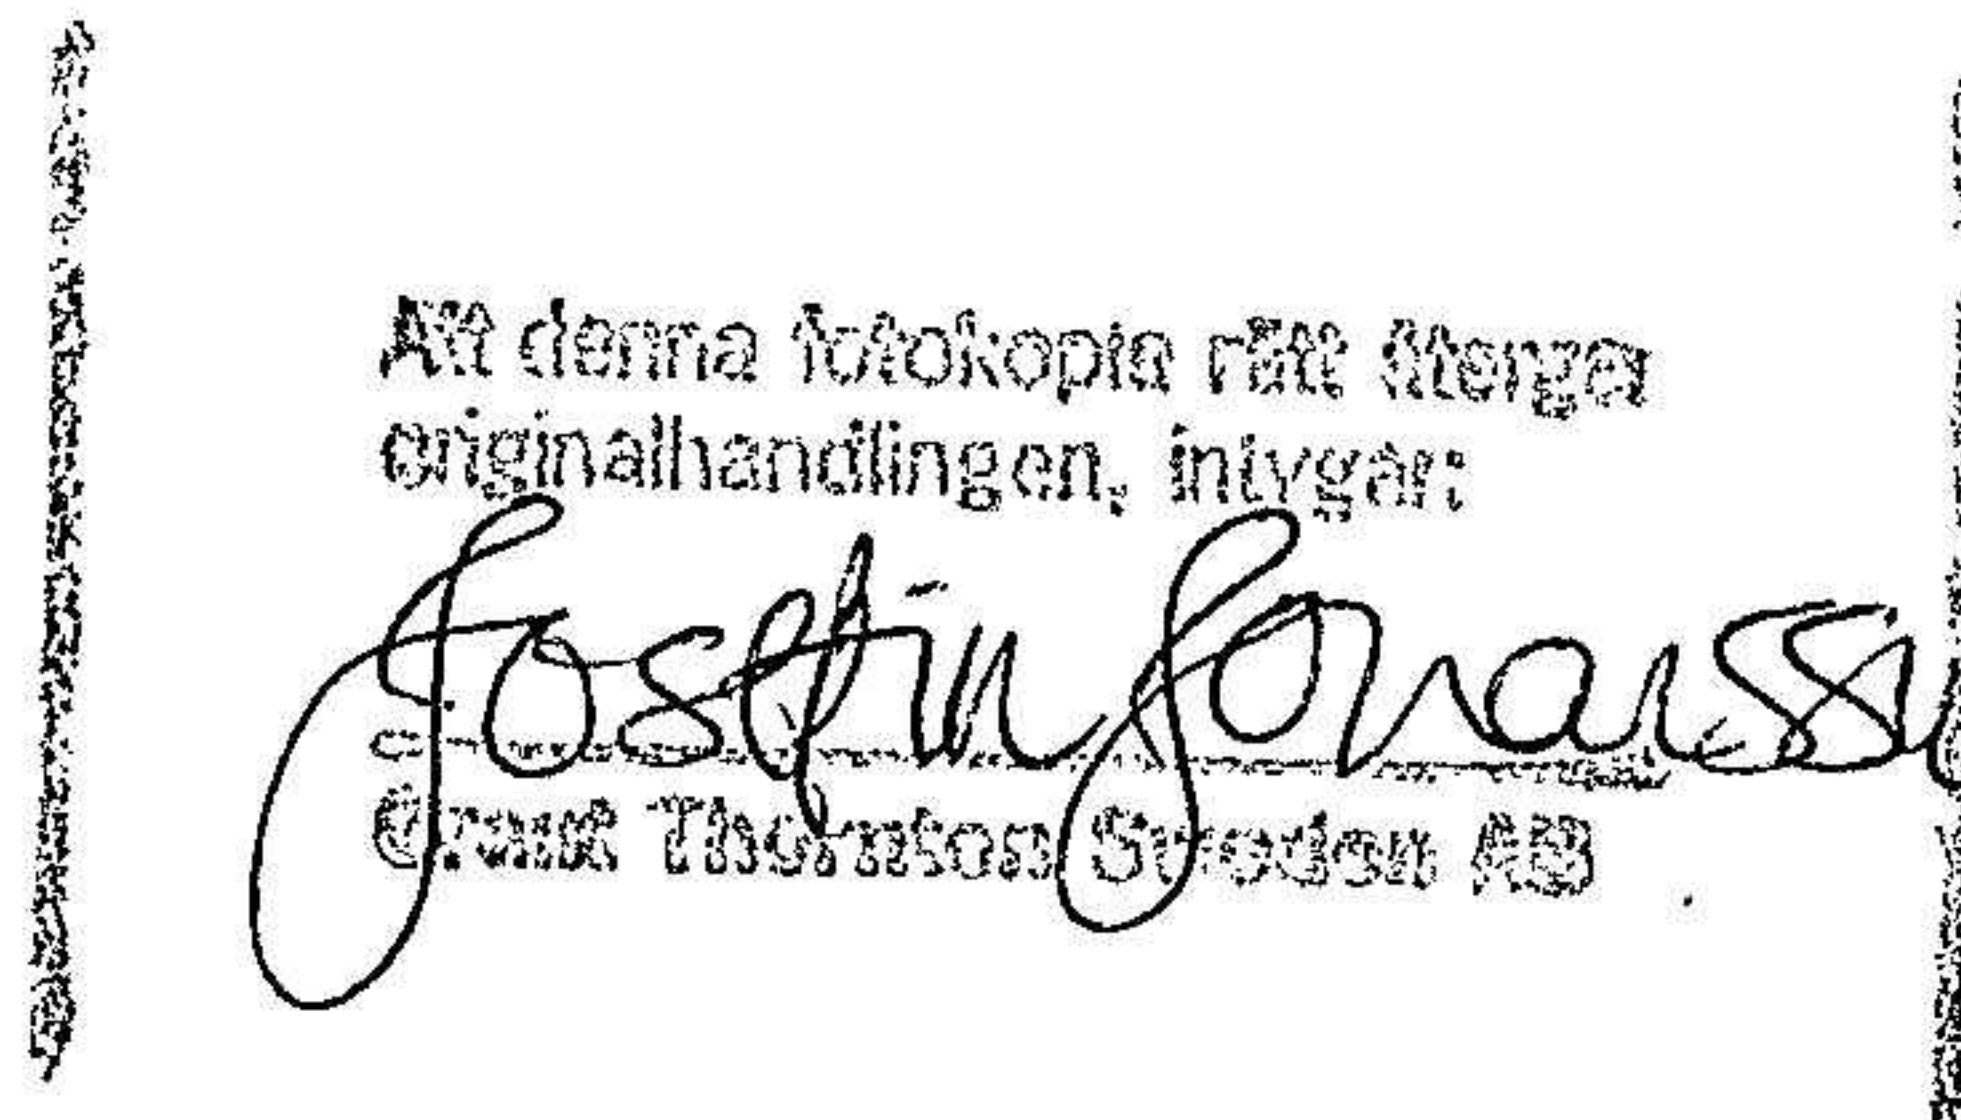 Att denna fotokopia rätt återger
originalhandlingen, intygar:
Josefin Jonasss
Grant Thornton Sweden AB